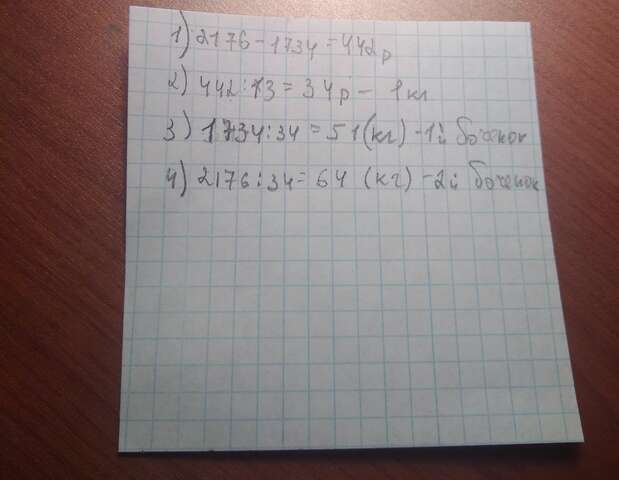 1) 2176 - 1734 = 442р
2) 442 : 13 = 34р - 1 кг
3) 1734 : 34 = 51 (кг) - 1й боченок
4) 2176 : 34 = 64 (кг) - 2й боченок